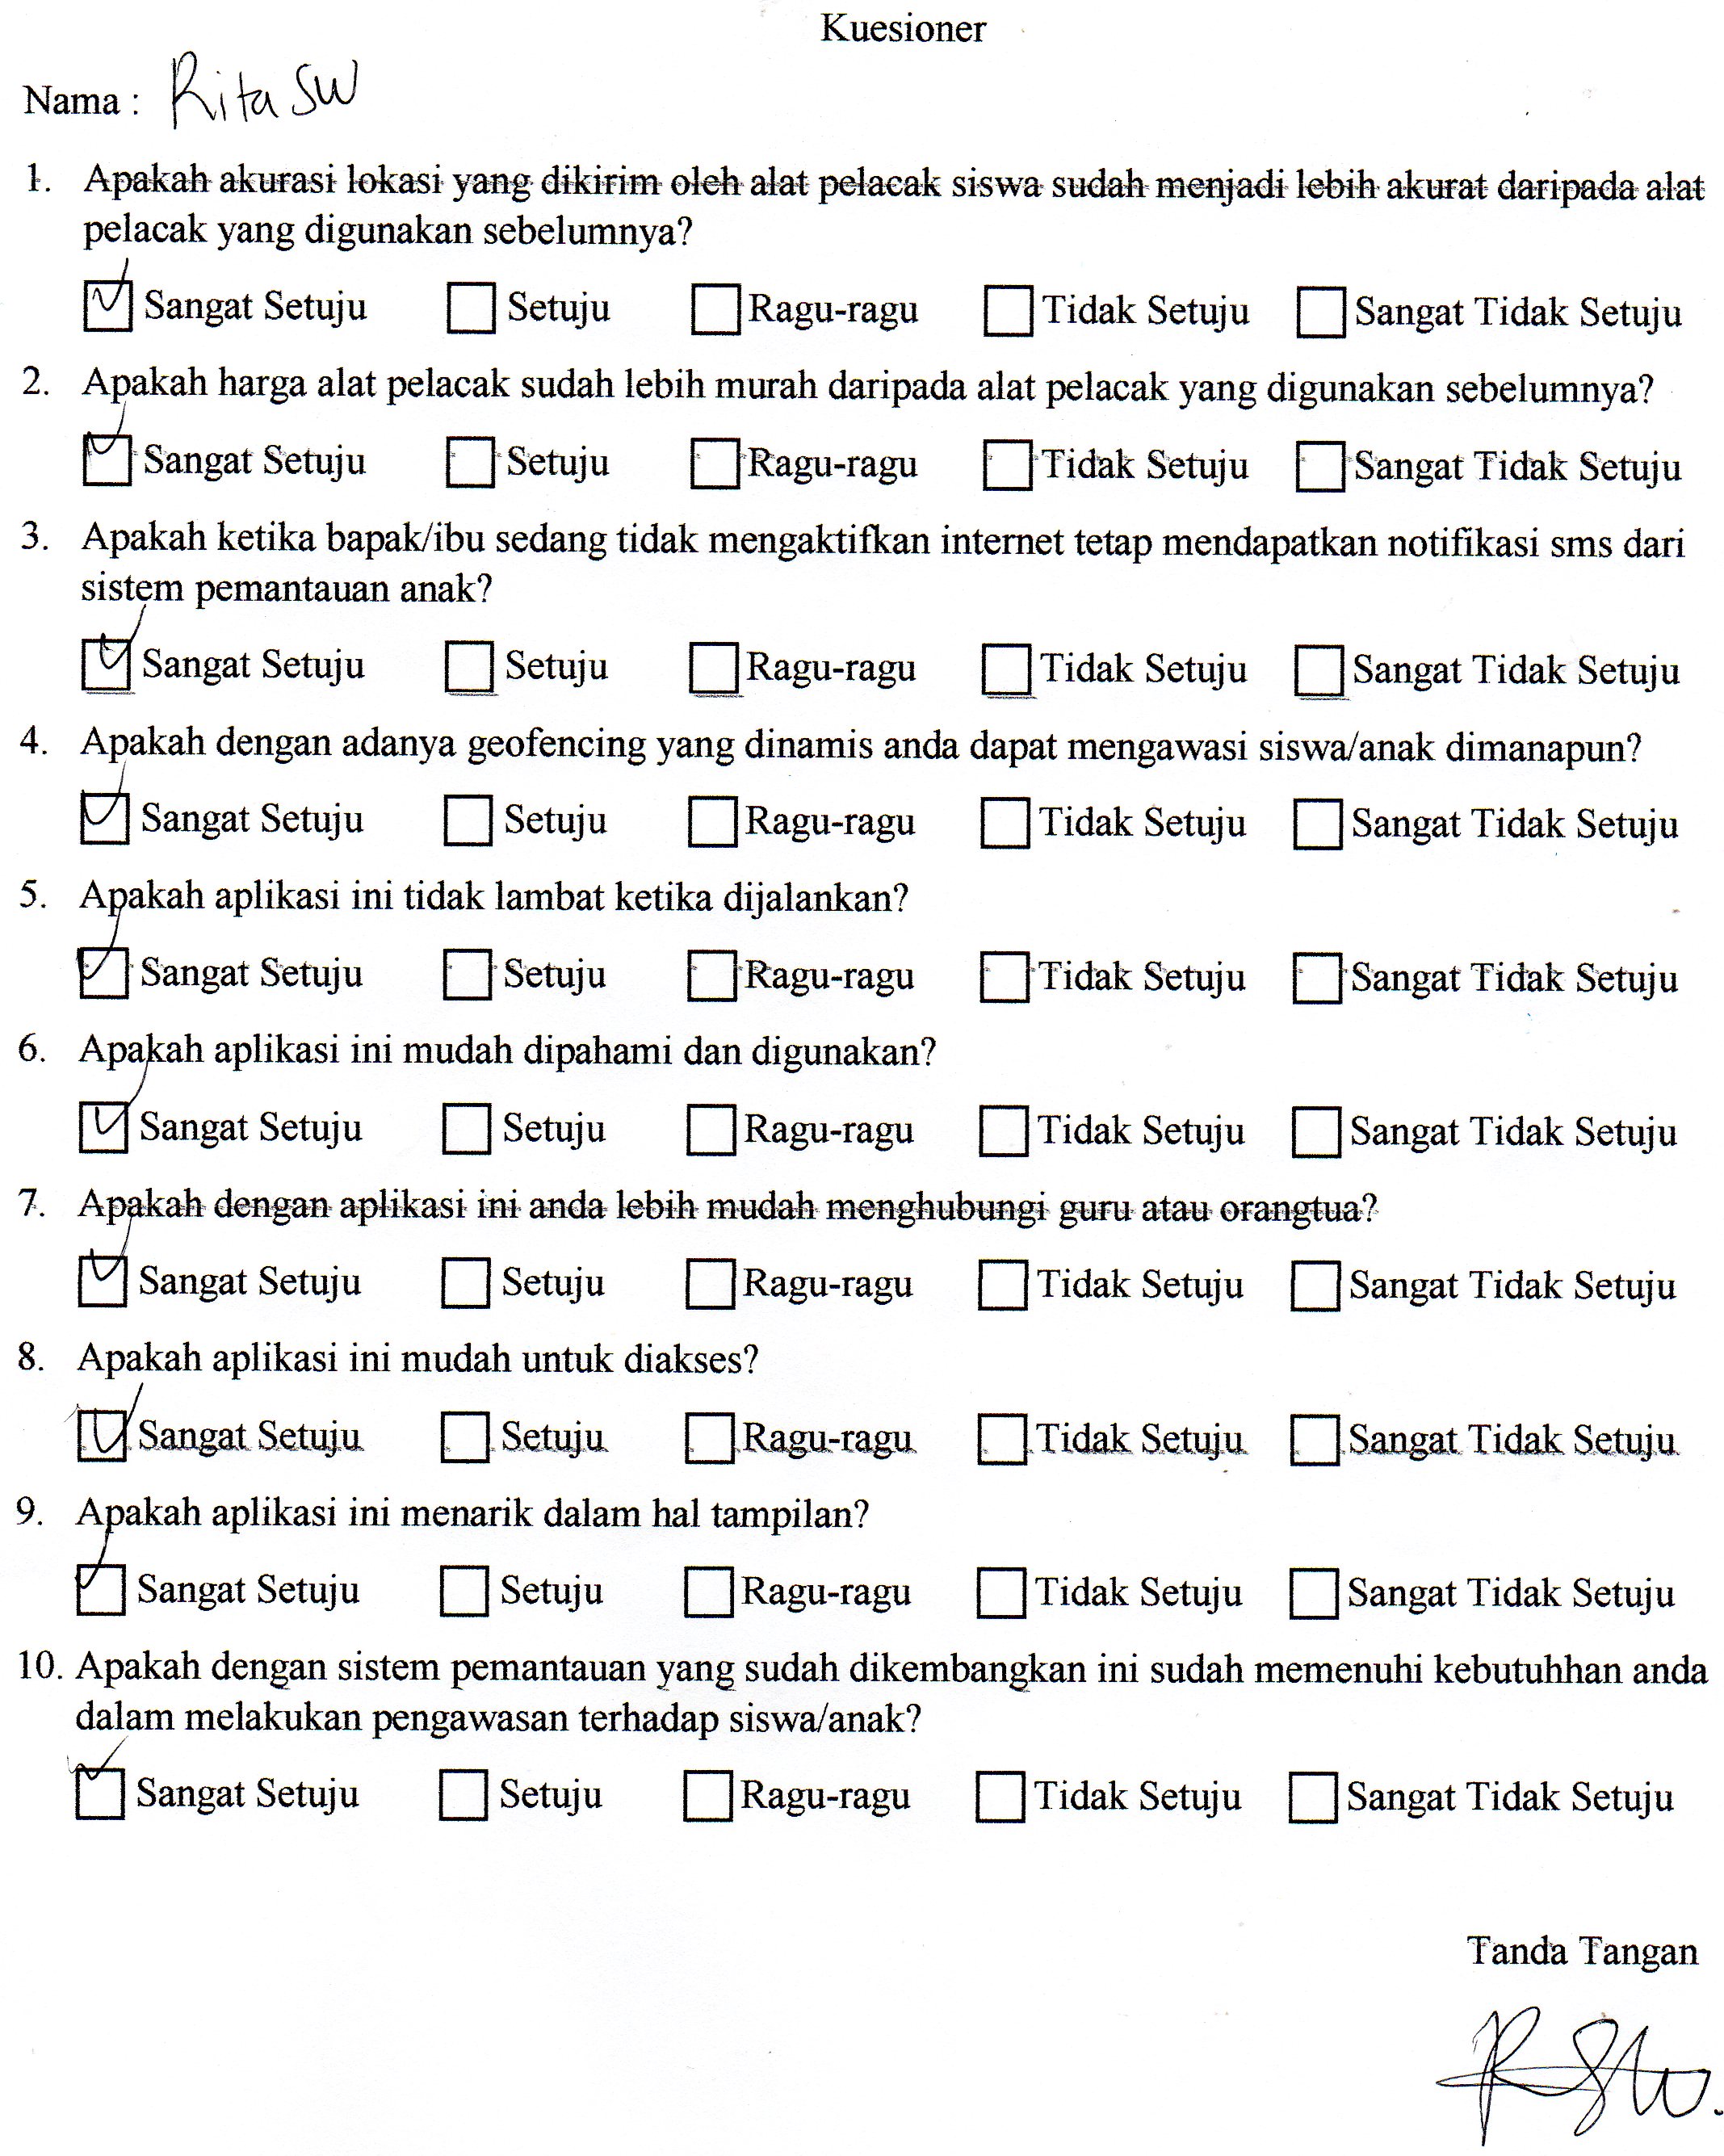 Kuesioner
Nama : Rita SW
1. Apakah akurasi lokasi yang dikirim oleh alat pelacak siswa sudah menjadi lebih akurat daripada alat
pelacak yang digunakan sebelumnya?
Sangat Setuju Setuju Ragu-ragu Tidak Setuju Sangat Tidak Setuju
2. Apakah harga alat pelacak sudah lebih murah daripada alat pelacak yang digunakan sebelumnya?
Sangat Setuju Setuju Ragu-ragu Tidak Setuju Sangat Tidak Setuju
3. Apakah ketika bapak/ibu sedang tidak mengaktifkan internet tetap mendapatkan notifikasi sms dari
sistem pemantauan anak?
Sangat Setuju Setuju Ragu-ragu Tidak Setuju Sangat Tidak Setuju
4. Apakah dengan adanya geofencing yang dinamis anda dapat mengawasi siswa/anak dimanapun?
Sangat Setuju Setuju Ragu-ragu Tidak Setuju Sangat Tidak Setuju
5. Apakah aplikasi ini tidak lambat ketika dijalankan?
Sangat Setuju Setuju Ragu-ragu Tidak Setuju Sangat Tidak Setuju
6. Apakah aplikasi ini mudah dipahami dan digunakan?
Sangat Setuju Setuju Ragu-ragu Tidak Setuju Sangat Tidak Setuju
7. Apakah dengan aplikasi ini anda lebih mudah menghubungi guru atau orangtua?
Sangat Setuju Setuju Ragu-ragu Tidak Setuju Sangat Tidak Setuju
8. Apakah aplikasi ini mudah untuk diakses?
Sangat Setuju Setuju Ragu-ragu Tidak Setuju Sangat Tidak Setuju
9. Apakah aplikasi ini menarik dalam hal tampilan?
Sangat Setuju Setuju Ragu-ragu Tidak Setuju Sangat Tidak Setuju
10. Apakah dengan sistem pemantauan yang sudah dikembangkan ini sudah memenuhi kebutuhhan anda
dalam melakukan pengawasan terhadap siswa/anak?
Sangat Setuju Setuju Ragu-ragu Tidak Setuju Sangat Tidak Setuju
Tanda Tangan